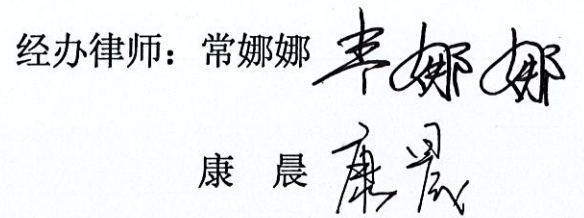 经办律师：常娜娜 常娜娜
康 晨 康晨